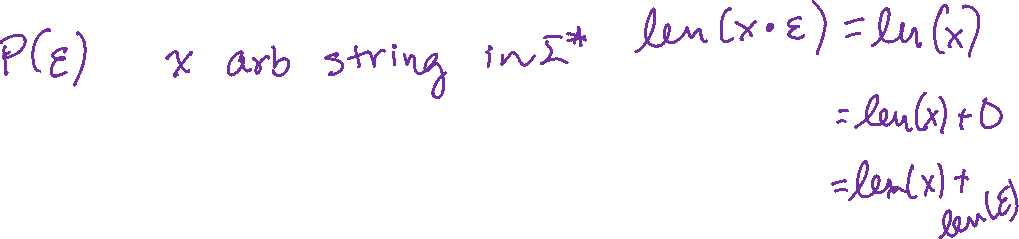 P(ε) x arb string in Σ* len(x • ε) = len(x)
= len(x) + 0
= len(x) + len(ε)